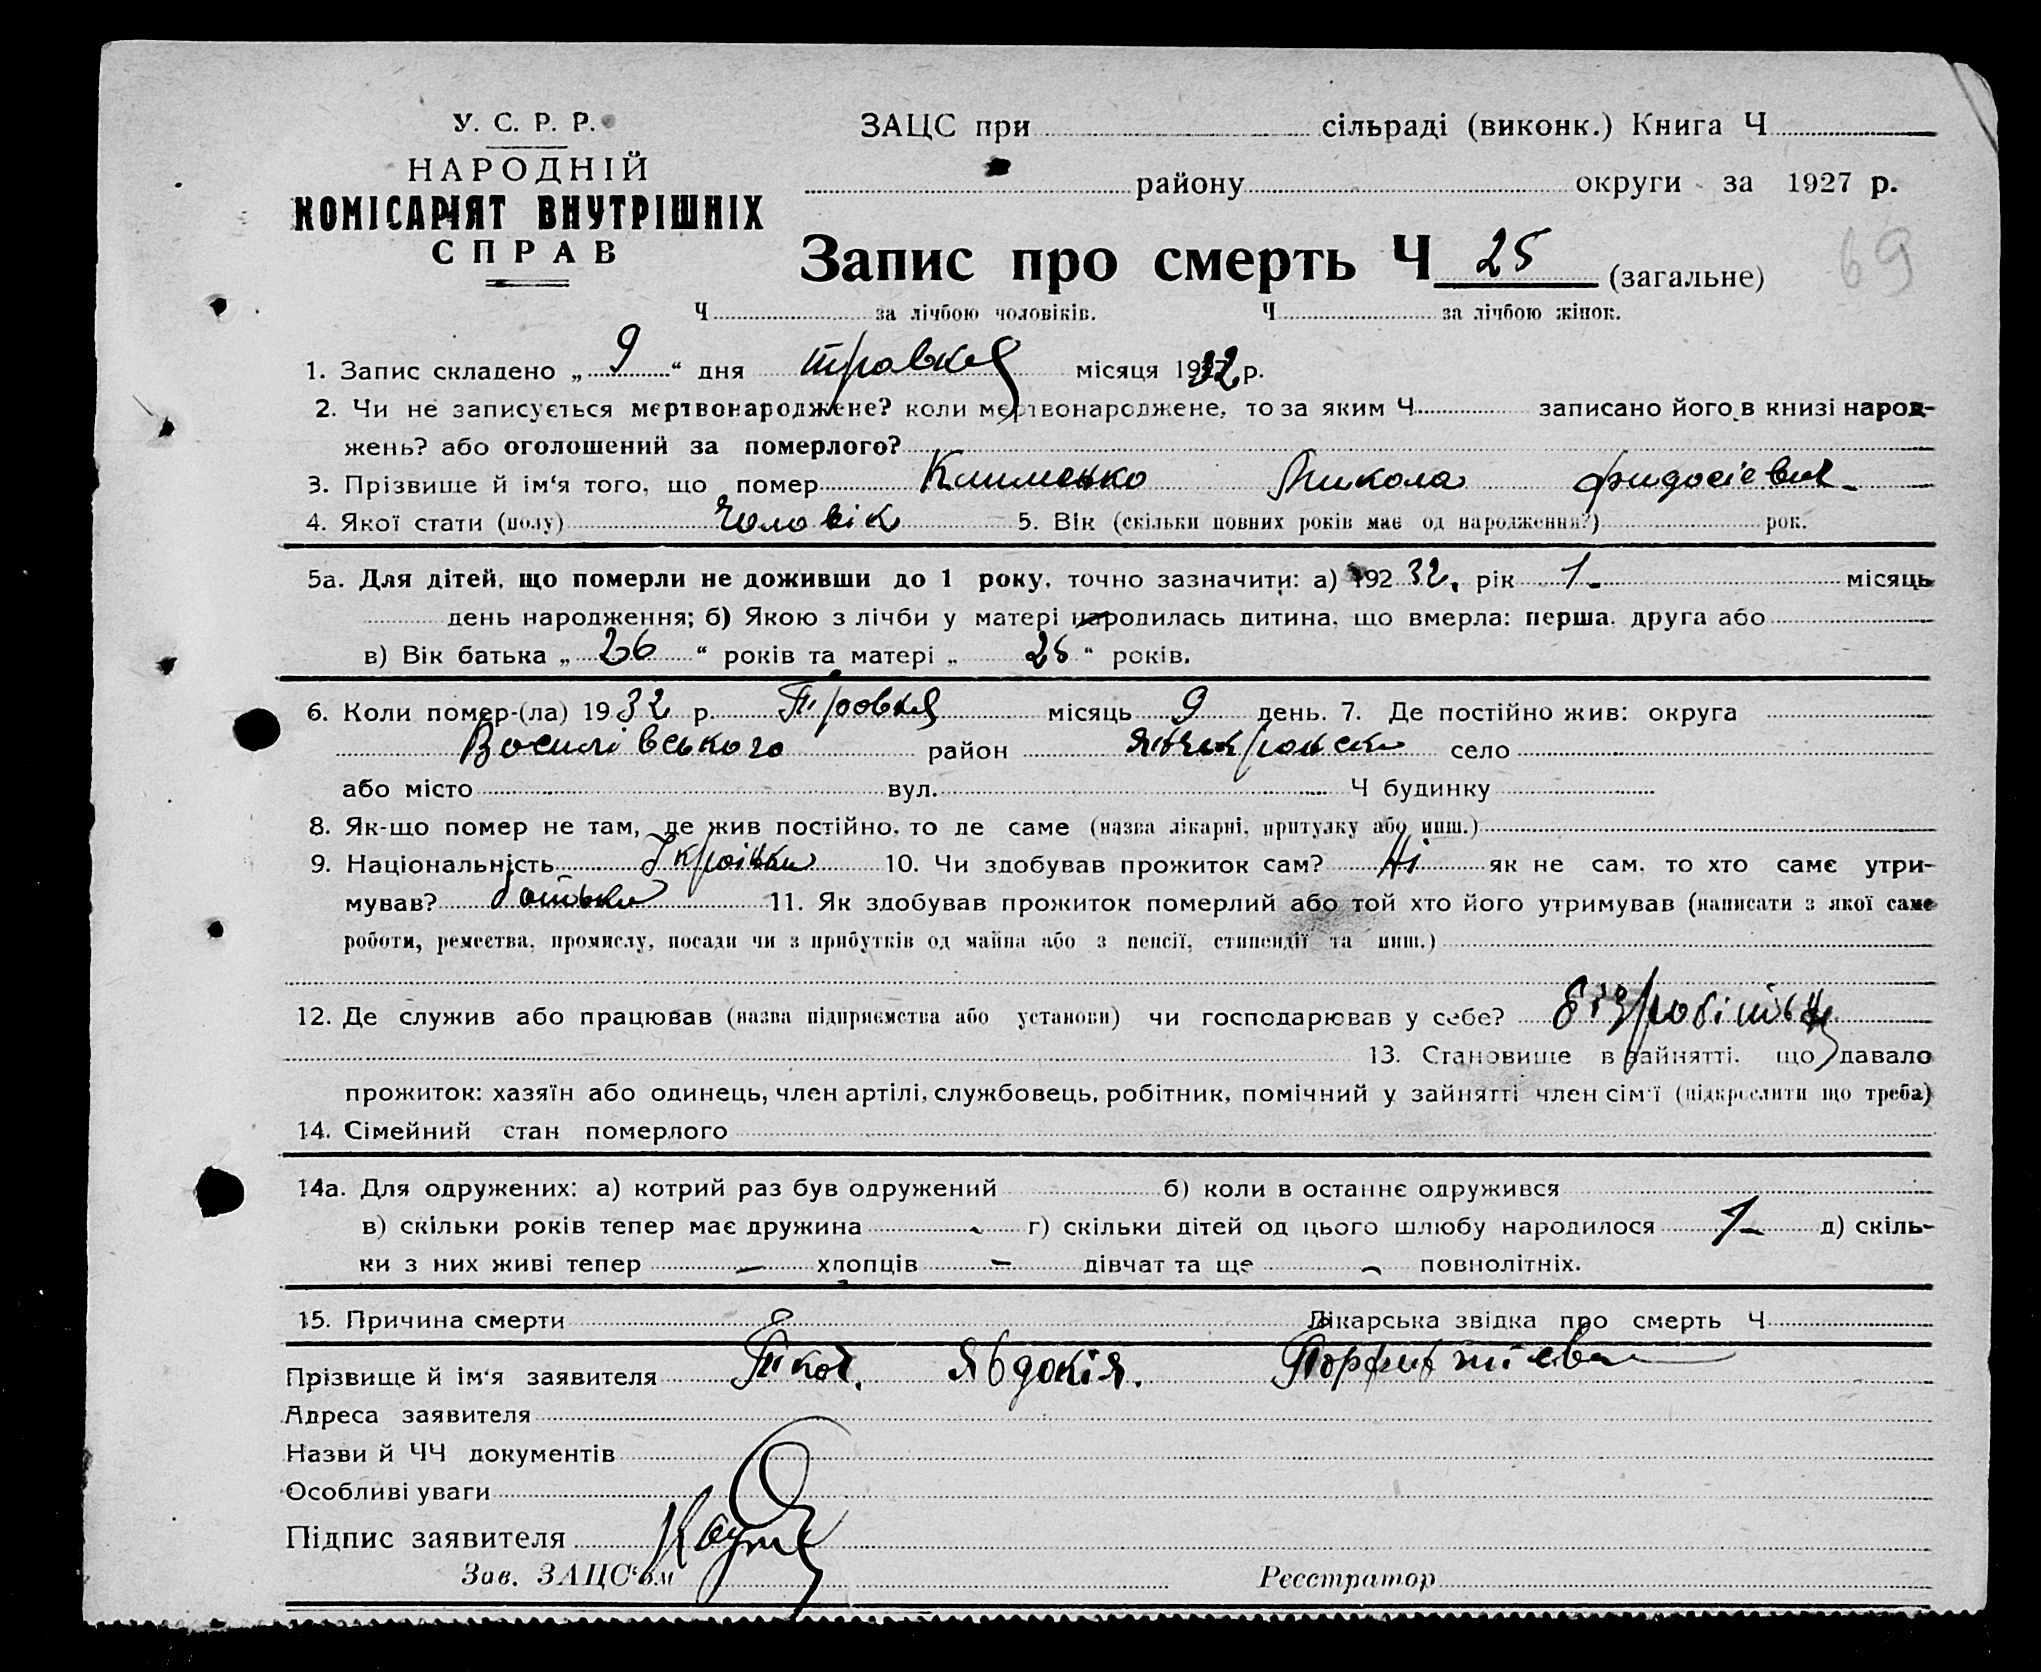 У. С. Р. Р.
НАРОДНІЙ
КОМІСАРІЯТ ВНУТРІШНІХ
СПРАВ
ЗАЦС при сільраді (виконк.) Книга Ч
району округи за 1927 р.
Запис про смерть Ч 25 (загальне)
69
Ч за лічбою чоловіків. Ч за лічбою жінок.
1. Запис складено „ 9 “ дня травня місяця 1932 р.
2. Чи не записується мертвонароджене? коли мертвонароджене, то за яким Ч записано його в книзі народ-
жень? або оголошений за померлого?
3. Прізвище й ім'я того, що помер Клименко Микола Фидосієвич
4. Якої стати (полу) Чоловік 5. Вік (скільки повних років має од народження?) рок.
5а. Для дітей, що померли не доживши до 1 року, точно зазначити: а) 192 32. рік 1 - місяць
день народження; б) Якою з лічби у матері народилась дитина, що вмерла: перша, друга або
в) Вік батька „ 26 “ років та матері „ 25 “ років.
6. Коли помер-(ла) 19 32 р. Травня місяць 9 день. 7. Де постійно жив: округа
Василівського район село
або місто вул. Ч будинку
8. Як-що помер не там, де жив постійно, то де саме (назва лікарні, притулку або инш.)
9. Національність 10. Чи здобував прожиток сам? Ні як не сам, то хто саме утри-
мував? батьки 11. Як здобував прожиток померлий або той хто його утримував (написати з якої саме
роботи, ремества, промислу, посади чи з прибутків од майна або з пенсії, стипендії та инш.)
12. Де служив або працював (назва підприємства або установи) чи господарював у себе?
13. Становище в зайнятті, що давало
прожиток: хазяїн або одинець, член артілі, службовець, робітник, помічний у зайнятті член сім'ї (підкреслити що треба)
14. Сімейний стан померлого
14а. Для одружених: а) котрий раз був одружений б) коли в останнє одружився
в) скільки років тепер має дружина - г) скільки дітей од цього шлюбу народилося 1 - д) скіль-
ки з них живі тепер - хлопців - дівчат та ще - повнолітніх.
15. Причина смерти Лікарська звідка про смерть Ч
Прізвище й ім'я заявителя Ткач. Явдокія.
Адреса заявителя
Назви й ЧЧ документів
Особливі уваги
Підпис заявителя
Зав. ЗАЦС'ом Реєстратор